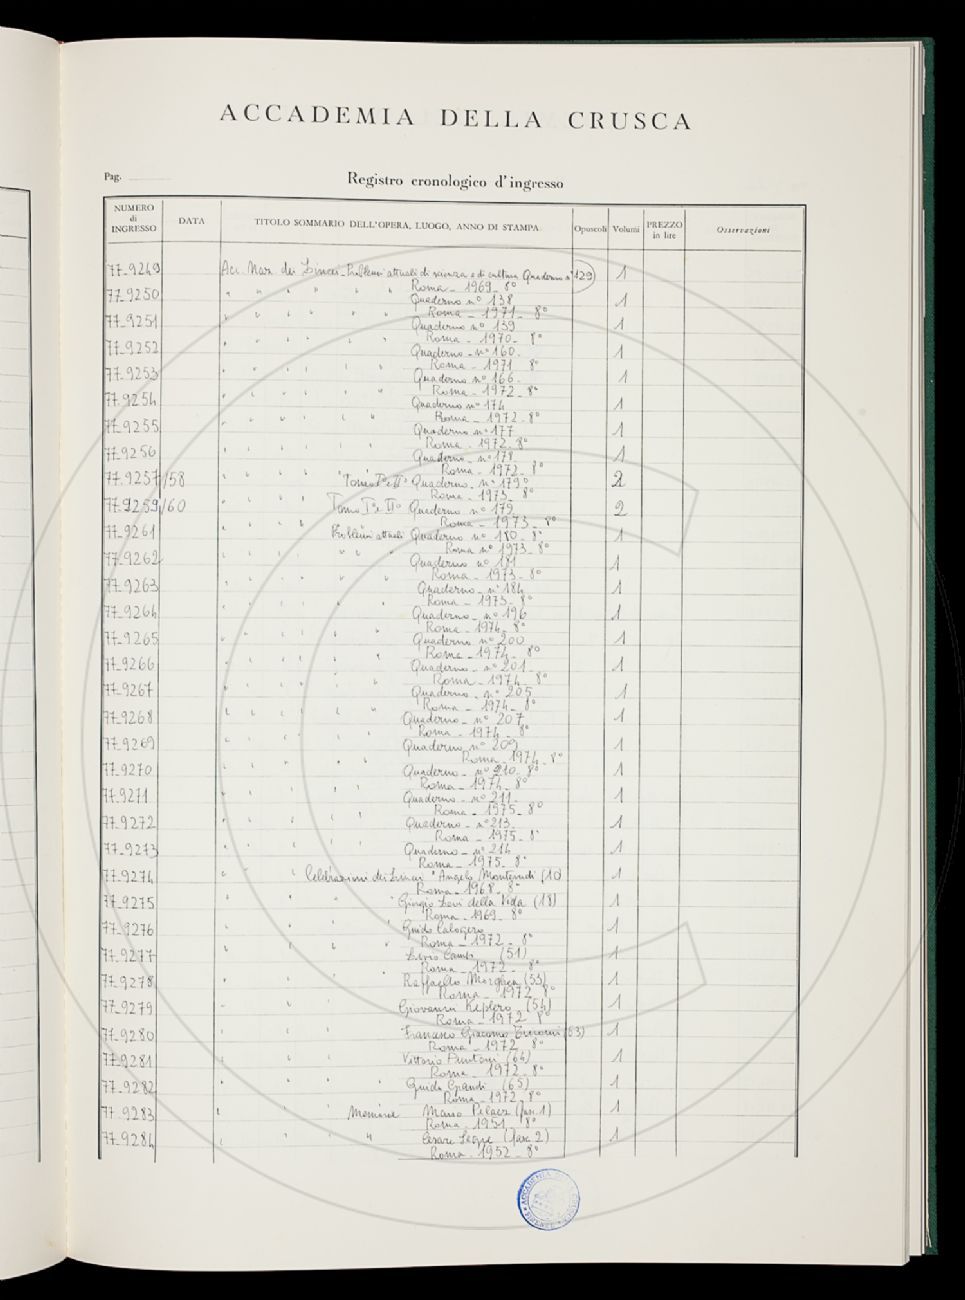 ACCADEMIA DELLA CRUSCA
Pag.
Registro cronologico d'ingresso
NUMERO di INGRESSO DATA TITOLO SOMMARIO DELL'OPERA, LUOGO, ANNO DI STAMPA Opuscoli Volumi PREZZO in lire Osservazioni
77-9249 Acc. Naz. dei Lincei - Problemi attuali di scienza e di cultura Quaderno n° 129 1
Roma - 1969 - 8°
77-9250 " " " " " Quaderno n° 138 1
Roma - 1971 - 8°
77-9251 " " " " " Quaderno n° 139 1
Roma - 1970 - 8°
77-9252 " " " " Quaderno - n° 160 1
Roma - 1971 8°
77-9253 " " " " " Quaderno n° 166 1
Roma - 1972 - 8°
77-9254 " " " " " Quaderno n° 174 1
Roma - 1972 - 8°
77-9255 " " " " " Quaderno n° 177 1
Roma - 1972 - 8°
77-9256 " " " " " Quaderno - n° 178 1
Roma - 1972 - 8°
77-9257/58 " " " " "Tomo I° e II° Quaderno - n° 179° 2
Roma - 1973 - 8°
77-9259/60 " " " " Tomo I° e II° Quaderno n° 179 2
Roma - 1973 - 8°
77-9261 " " " " Problemi attuali Quaderno n° 180 - 8° 1
Roma n° 1973 - 8°
77-9262 " " " " " " Quaderno n° 181 1
Roma - 1973 - 8°
77-9263 " " " " " " Quaderno - n° 184 1
Roma - 1973 - 8°
77-9264 " " " " " Quaderno - n° 196 1
Roma - 1974 - 8°
77-9265 " " " " " Quaderno n° 200 1
Roma - 1974 - 8°
77-9266 " " " " " Quaderno - n° 201 1
Roma - 1974 - 8°
77-9267 " " " " " Quaderno - n° 205 1
Roma - 1974 - 8°
77-9268 " " " " " Quaderno - n° 207 1
Roma - 1974 - 8°
77-9269 " " " " Quaderno n° 209 1
Roma - 1974 - 8°
77-9270 " " " " Quaderno - n° 210 - 8° 1
Roma - 1974 - 8°
77-9271 " " " " Quaderno - n° 211 1
Roma - 1975 - 8°
77-9272 " " " " Quaderno - n° 213 1
Roma - 1975 - 8°
77-9273 " " " " Quaderno - n° 214 1
Roma - 1975 - 8°
77-9274 " " " Celebrazioni dei Lincei "Angelo (10) 1
Roma - 1968 - 8°
77-9275 " " " "Giorgio Levi della Vida (18) 1
Roma - 1969 - 8°
77-9276 " " " Guido Calogero 1
Roma - 1972 - 8°
77-9277 " " " " (51) 1
Roma - 1972 - 8°
77-9278 " " " Raffaello Morghen (53) 1
Roma - 1972 8°
77-9279 " " " Giovanni Keplero (54) 1
Roma - 1972 8°
77-9280 " " " Francesco Giacomo Tricomi (63) 1
Roma - 1972 8°
77-9281 " " " Vittorio Puntoni (64) 1
Roma - 1972 - 8°
77-9282 " " " Guido Grandi (65) 1
Roma - 1972 - 8°
77-9283 " " Memorie Mario Pelaez (fasc. 1) 1
Roma - 1951 - 8°
77-9284 " " " " Cesare Segre (fasc. 2) 1
Roma - 1952 - 8°